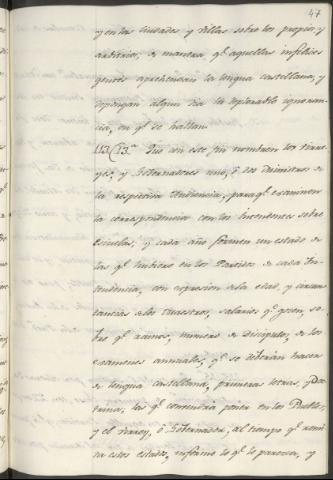 47
y en las ciudades y villas sobre los propios y
arbitrios; de manera q.e aquellas infelices
gentes aprehendan la lengua castellana, y
depongan algun dia la deplorable ignoran-
cia, en q.e se hallan.
113 (13.a Que con este fin nombren los virre-
yes, y Gobernadores uno, ó dos ministros de
la respectiva Audiencia, para q.e examinen
la correspondencia con los Intendentes sobre
escuelas; y cada año formen un estado de
las q.e hubiere en los Partidos de cada In-
tendencia, con expresion de la edad, y circuns-
tancias de los maestros, salarios q.e gozen, so-
bre q.e ramos, numero de discipulos, de los
examenes annuales, q.e se deberan hacer
de lengua castellana, primeras letras, y Doc-
trina, las q.e convendria poner en los Pueblos;
y el virrey, ó Gobernador, al tiempo q.e remi-
ta estos estados, informe lo q.e le parezca, y